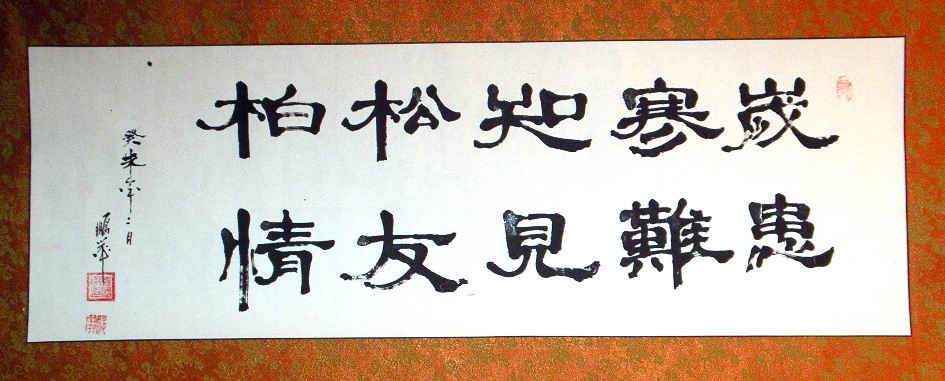 歲寒知松柏
患難見友情
癸未年二月
鵬